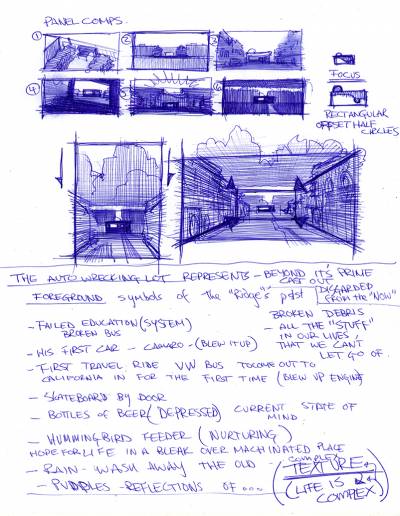 PANEL COMPS.
① ② ③
④ 5 ⑥
FOCUS
RECTANGULAR
OFFSET HALF
CIRCLES
THE AUTO WRECKING LOT REPRESENTS - BEYOND IT'S PRIME
CAST OUT
FOREGROUND symbols of the "Ridge's" past
DISGARDED
from the "NOW"
- FAILED EDUCATION (SYSTEM)
BROKEN BUS
BROKEN DEBRIS
- ALL THE "STUFF"
IN OUR LIVES
THAT WE CAN'T
LET GO OF.
- HIS FIRST CAR - CAMARO - (BLEW IT UP)
- FIRST TRAVEL RIDE VW BUS TO COME OUT TO
CALIFORNIA IN FOR THE FIRST TIME (BLEW UP ENGINE)
- SKATEBOARD BY DOOR
- BOTTLES OF BEER (DEPRESSED) CURRENT STATE OF
MIND.
- HUMMINGBIRD FEEDER (NURTURING)
HOPE FOR LIFE IN A BLEAK OVER MACHINATED PLACE
- RAIN - WASH AWAY THE OLD -
- PUDDLES - REFLECTIONS OF ...
COMPLEX
TEXTURE
(LIFE IS
COMPLEX)